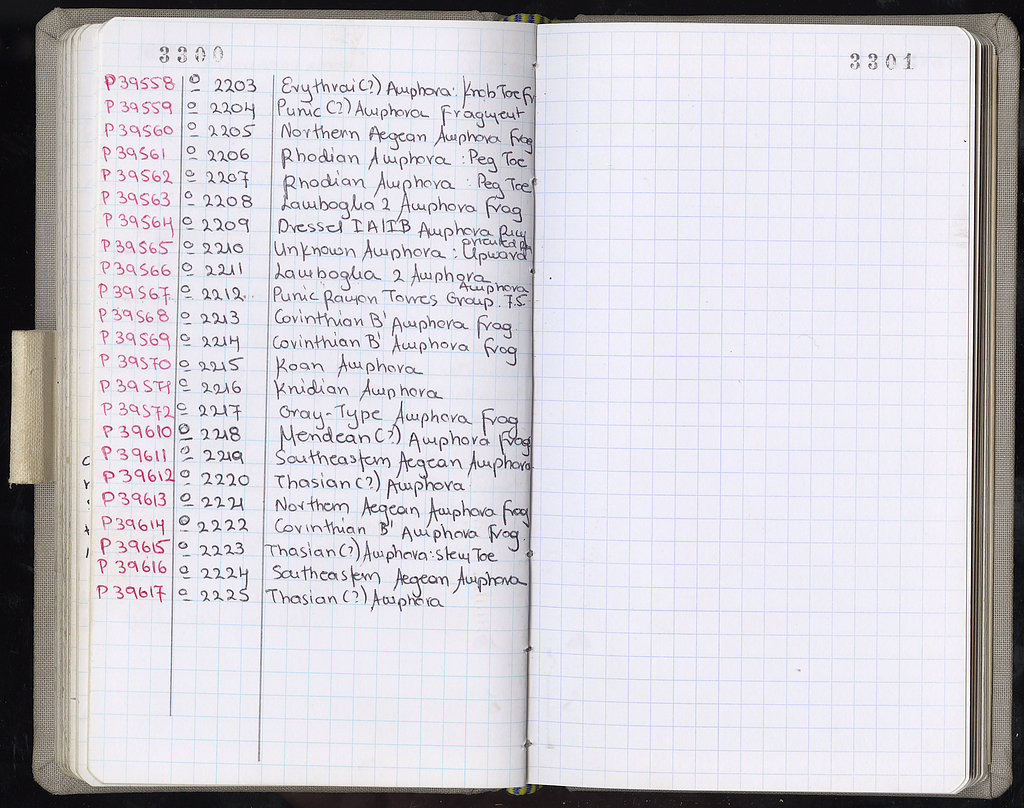 3300
P39558 º 2203 Erythrai(?) Amphora: Knob Toe Fr
P39559 º 2204 Punic (?) Amphora Fragment
P39560 º 2205 Northern Aegean Amphora Frag
P39561 º 2206 Rhodian Amphora : Peg Toe
P39562 º 2207 Rhodian Amphora : Peg Toe
P39563 º 2208 Lamboglia 2 Amphora Frag
P39564 º 2209 Dressel IA/IB Amphora Rim
P39565 º 2210 Unknown Amphora : Upward oriented
P39566 º 2211 Lamboglia 2 Amphora
P39567 º 2212 Punic Ramon Torres Group. 7.5 Amphora
P39568 º 2213 Corinthian B' Amphora Frag.
P39569 º 2214 Corinthian B' Amphora Frog
P39570 º 2215 Koan Amphora
P39571 º 2216 Knidian Amphora
P39572 º 2217 Gray-Type Amphora Frag
P39610 º 2218 Mendean(?) Amphora Frag
P39611 º 2219 Southeastern Aegean Amphora
P39612 º 2220 Thasian(?) Amphora
P39613 º 2221 Northern Aegean Amphora Frag
P39614 º 2222 Corinthian B' Amphora Frag.
P39615 º 2223 Thasian(?) Amphora: Stem Toe
P39616 º 2224 Southeastern Aegean Amphora
P39617 º 2225 Thasian(?) Amphora
3301